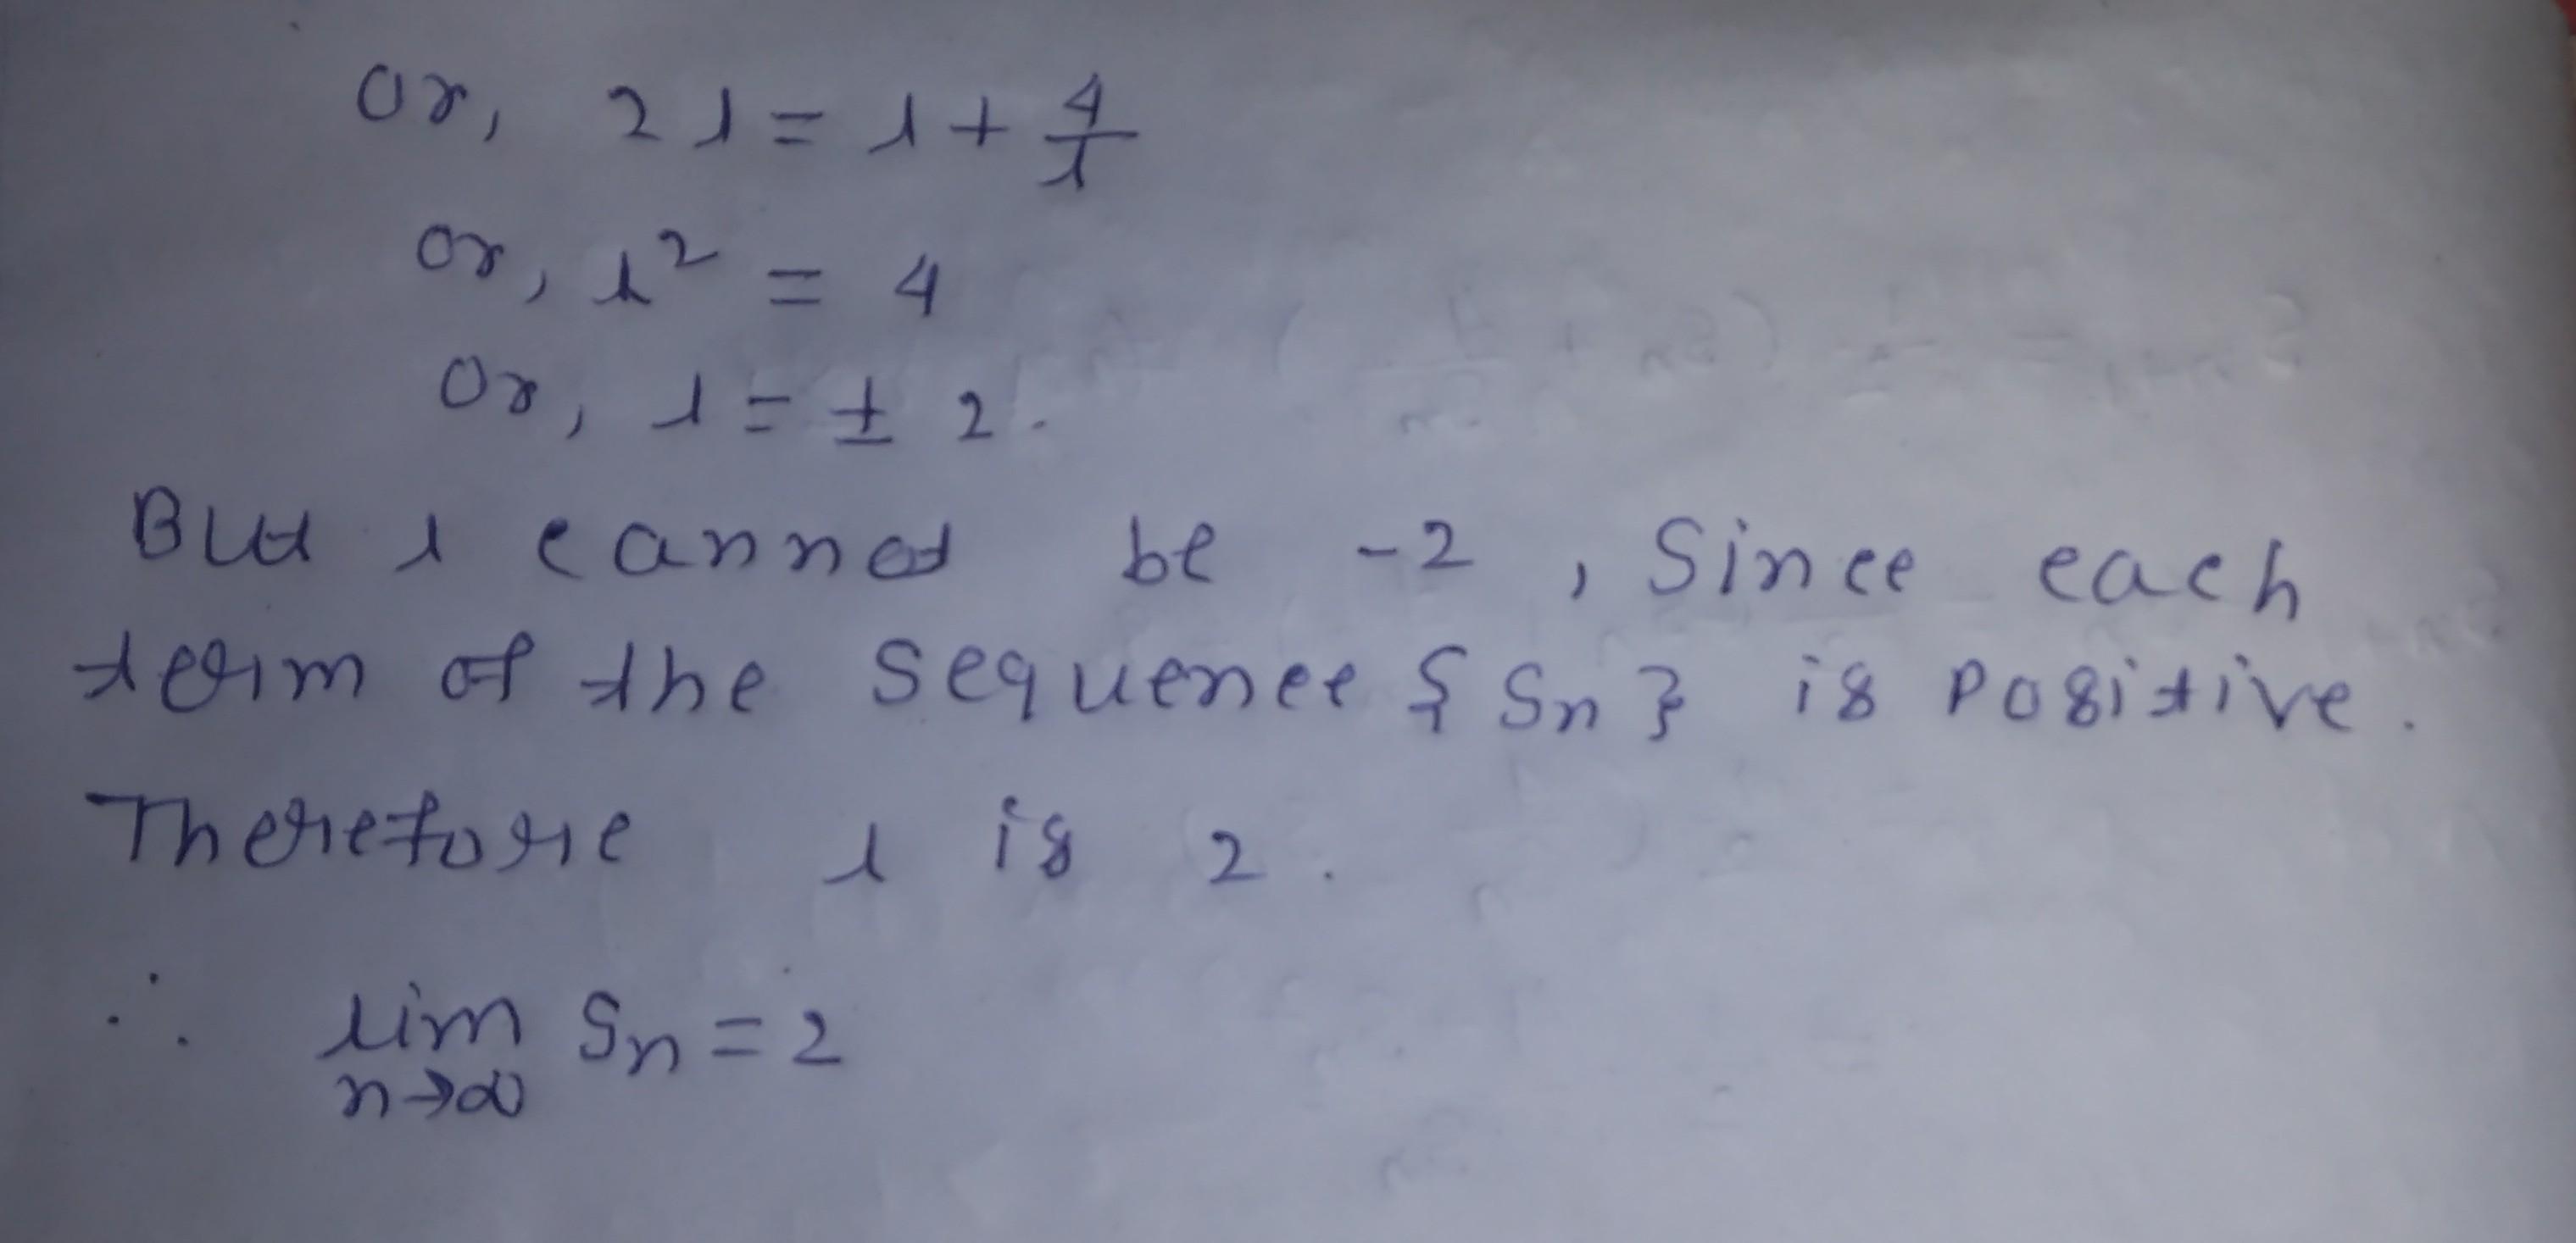 or, 2l = l + 4/l
or, l² = 4
or, l = ± 2.
But l cannot be -2, Since each
term of the sequence {Sn} is Positive.
Therefore l is 2.
∴ lim Sn = 2
n→∞